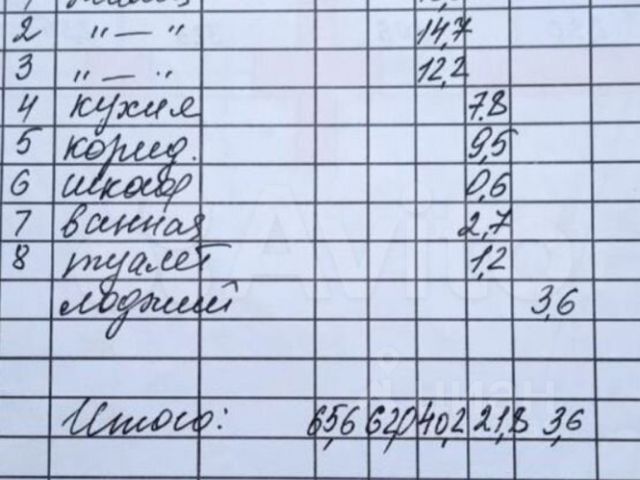 2 "—" 14,7
3 "—" 12,2
4 кухня 7.8
5 корид. 9,5
6 шкаф 0,6
7 ванная 2,7
8 туалет 1,2
лоджий 3,6
Итого: 65,6 62,0 40,2 21,8 3,6
Avito